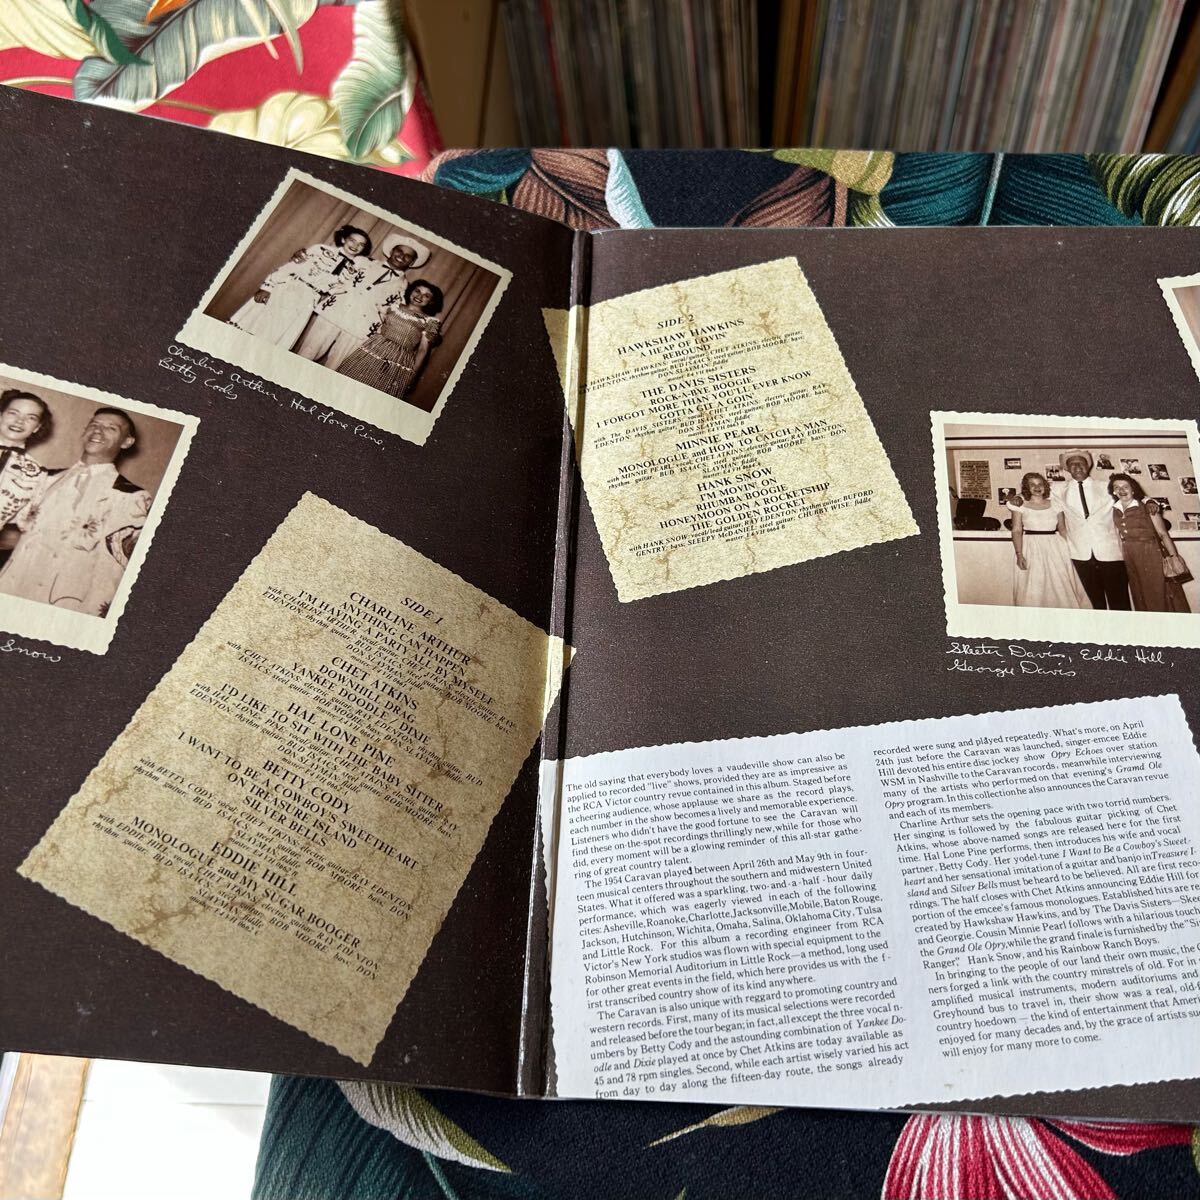 Charline Arthur, Hal Lone Pine
Betty Cody
Snow
SIDE 1
CHARLINE ARTHUR
ANYTHING CAN HAPPEN
I'M HAVING A PARTY ALL BY MYSELF
CHET ATKINS
DOWNHILL DRAG
YANKEE DOODLE / DIXIE
HAL LONE PINE
I'D LIKE TO SIT WITH THE BABY SITTER
BETTY CODY
I WANT TO BE A COWBOY'S SWEETHEART
ON TREASURE ISLAND
SILVER BELLS
EDDIE HILL
MONOLOGUE and MY SUGAR BOOGER
SIDE 2
HAWKSHAW HAWKINS
A HEAP OF LOVIN'
REBOUND
HAWKSHAW HAWKINS: vocal/guitar; CHET ATKINS: electric guitar;
EDENTON: rhythm guitar, BUD ISAACS: steel guitar; BOB MOORE: bass;
DON SLAYMAN: fiddle
THE DAVIS SISTERS
ROCK-A-BYE BOOGIE
I FORGOT MORE THAN YOU'LL EVER KNOW
GOTTA GIT A GOIN'
with The DAVIS SISTERS: vocal; CHET ATKINS: electric guitar, RAY
EDENTON: rhythm guitar, BUD ISAACS: steel guitar; BOB MOORE, bass.
DON SLAYMAN; fiddle
MINNIE PEARL
MONOLOGUE and HOW TO CATCH A MAN
with MINNIE PEARL: vocal; CHET ATKINS: electric guitar; RAY EDENTON
rhythm guitar, BUD ISAACS; steel guitar; BOB MOORE; bass. DON
SLAYMAN; fiddle
HANK SNOW
I'M MOVIN' ON
RHUMBA BOOGIE
HONEYMOON ON A ROCKETSHIP
THE GOLDEN ROCKET
with HANK SNOW: vocal/lead guitar; RAY EDENTON: rhythm guitar; BUFORD
GENTRY: bass; SLEEPY McDANIEL: steel guitar; CHUBBY WISE: fiddle
Skeeter Davis, Eddie Hill,
Georgie Davis
The old saying that everybody loves a vaudeville show can also be
applied to recorded "live" shows, provided they are as impressive as
the RCA Victor country revue contained in this album. Staged before
a cheering audience, whose applause we share as the record plays,
each number in the show becomes a lively and memorable experience,
Listeners who didn't have the good fortune to see the Caravan will
find these on-the-spot recordings thrillingly new, while for those who
did, every moment will be a glowing reminder of this all-star gathe-
ring of great country talent.
The 1954 Caravan played between April 26th and May 9th in four-
teen musical centers throughout the southern and midwestern United
States. What it offered was a sparkling, two-and-a-half-hour daily
performance, which was eagerly viewed in each of the following
cites: Asheville, Roanoke, Charlotte, Jacksonville, Mobile, Baton Rouge,
Jackson, Hutchinson, Wichita, Omaha, Salina, Oklahoma City, Tulsa
and Little Rock. For this album a recording engineer from RCA
Victor's New York studios was flown with special equipment to the
Robinson Memorial Auditorium in Little Rock—a method, long used
for other great events in the field, which here provides us with the f-
irst transcribed country show of its kind anywhere.
The Caravan is also unique with reggard to promoting country and
western records. First, many of its musical selections were recorded
and released before the tour began; in fact, all except the three vocal n-
umbers by Betty Cody and the astounding combination of Yankee Do-
odle and Dixie played at once by Chet Atkins are today available as
45 and 78 rpm singles. Second, while each artist wisely varied his act
from day to day along the fifteen-day route, the songs already
recorded were sung and played repeatedly. What's more, on April
24th just before the Caravan was launched, singer-emcee Eddie
Hill devoted his entire disc jockey show Opry Echoes over station
WSM in Nashville to the Caravan records, meanwhile interviewing
many of the artists who performed on that evening's Grand Ole
Opry program. In this collection he also announces the Caravan revue
and each of its members.
Charline Arthur sets the opening pace with two torrid numbers.
Her singing is followed by the fabulous guitar picking of Chet
Atkins, whose above-named songs are released here for the first
time. Hal Lone Pine performs, then introduces his wife and vocal
partner, Betty Cody. Her yodel-tune I Want to Be a Cowboy's Sweet-
heart and her sensational imitation of a guitar and banjo in Treasure I-
sland and Silver Bells must be heard to be believed. All are first reco-
rdings. The half closes with Chet Atkins announcing Eddie Hill for
portion of the emcee's famous monologues. Established hits are re-
created by Hawkshaw Hawkins, and by The Davis Sisters—Skeeter
and Georgie. Cousin Minnie Pearl follows with a hilarious touch
the Grand Ole Opry, while the grand finale is furnished by the "Si
Ranger," Hank Snow, and his Rainbow Ranch Boys.
In bringing to the people of our land their own music, the C
ners forged a link with the country minstrels of old. For in
amplified musical instruments, modern auditoriums and
Greyhound bus to travel in, their show was a real, old-f
country hoedown — the kind of entertainment that Amer
enjoyed for many decades and, by the grace of artists suc
will enjoy for many more to come.